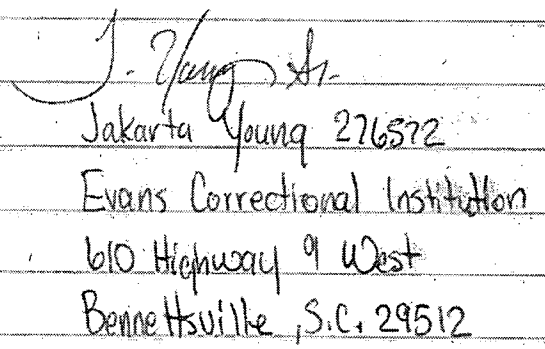 J. Young Sr.
Jakarta Young 276572
Evans Correctional Institution
610 Highway 9 West
Bennettsville, S.C. 29512